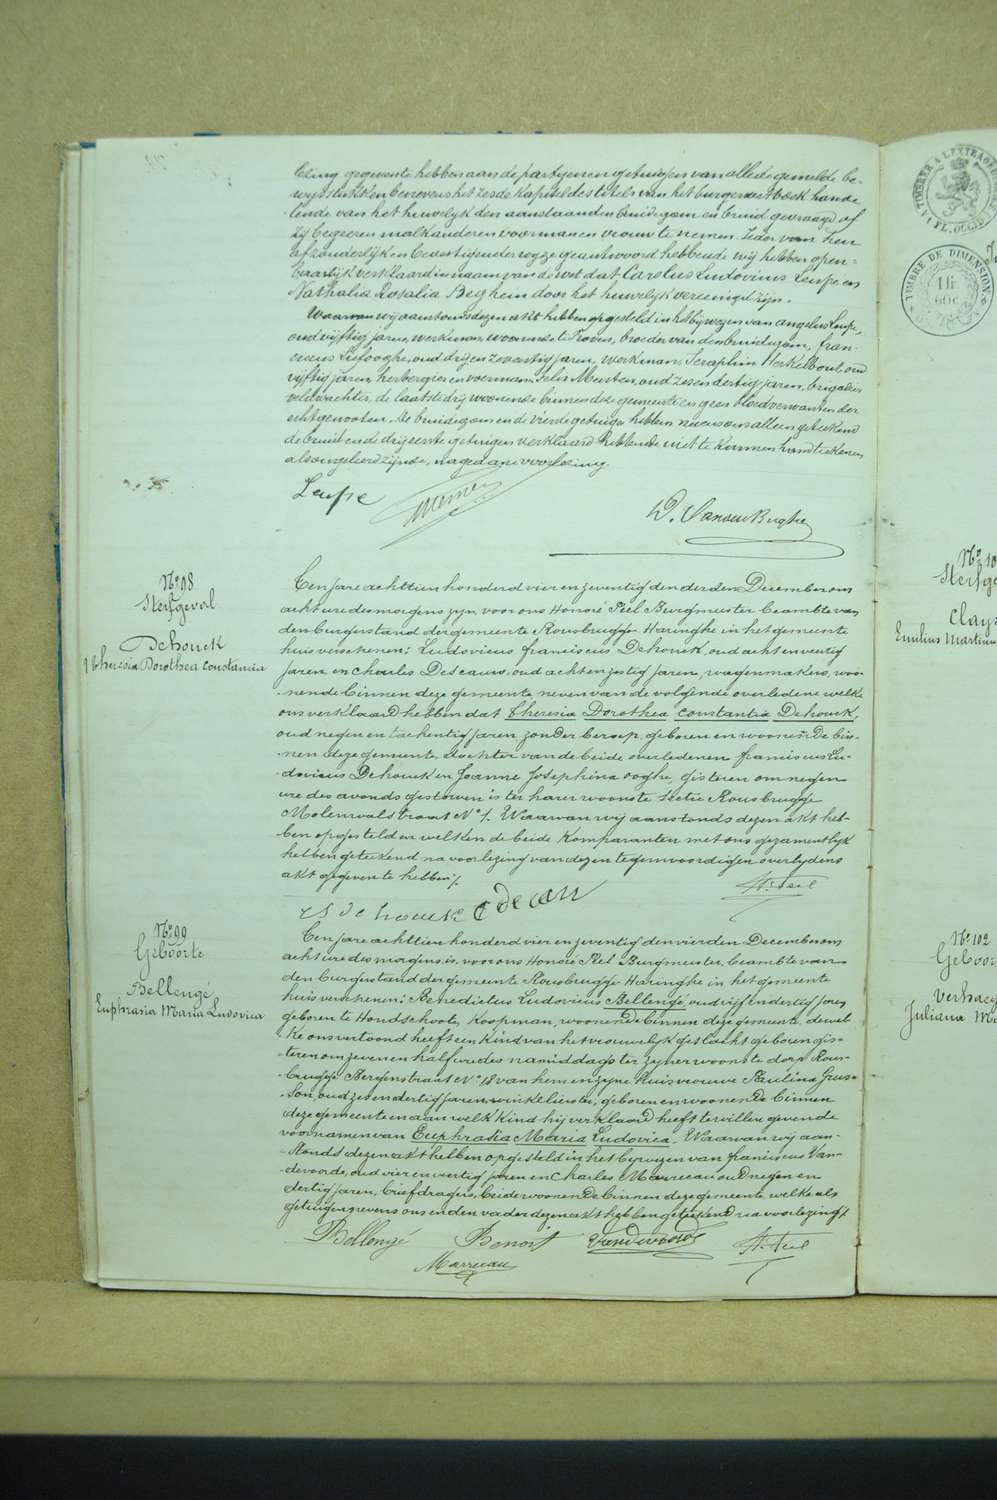 lezing gegeven te hebben aan de partyen en getuigen van alle de gemelde be-
wysstukken benevens het zesde kapittel des titels van het burgerwetboek hande
lende van het huwelyk den aanstaanden bruidegom en bruid gevraagd of
zy begeeren malkanderen voor man en vrouw te nemen. Ieder van hen
afzonderlyk en bevestigender wyze geantwoord hebbende wy hebben open-
baarlyk verklaard in naam van de wet dat Carolus Ludovicus Leupe en
Nathalia Rosalia Beghein door het huwelyk vereenigd zyn.
Waarvan wy aanstonds dezen akt hebben opgesteld in het bywezen van angelus Leupe,
oud vyftig jaren, werkman, woonende te Proven, broeder van den bruidegom, fran-
ciscus oud dry en zeventig jaren, werkman, Seraphin Herkelbout, oud
vyftig jaren, herbergier en voerman, Felix Mertens, oud zes en dertig jaren, brigadier
veldwachter, de laatste dry woonende binnen deze gemeente en geen bloedverwanten der
echtgenooten. De bruidegom en de vierde getuige hebben nevens ons alleen geteekend
de bruid en de dry eerste getuigen verklaard hebbende niet te kunnen handteekenen
als ongeleerd zynde, na gedane voorlezing.
Leupe
D. VandenBerghe
No 98
Sterfgeval
Dehouck
Theresia Dorothea Constancia
Ten jare achttien honderd vier en zeventig den derden December om
acht ure des morgens zyn, voor ons Honoré Feel Burgmeester beambte van
den burgerstand der gemeente Rousbrugge-Haringhe in het gemeente
huis verschenen: Ludovicus franciscus Dehouck, oud acht en veertig
jaren, en Charles Descauw, oud acht en zestig jaren, wagenmakers, woo-
nende binnen deze gemeente, neven van de volgende overledene welke
ons verklaard hebben dat Theresia Dorothea Constantia Dehouck,
oud negen en tachentig jaren, zonder beroep, geboren en woonende bin-
nen deze gemeente, dochter van de beide overledenen franciscus Lu-
dovicus Dehouck en Joanne Josephina Ooghe, gisteren om negen
ure des avonds gestorven is ter harer woonste sectie Rousbrugge
Molenwalstraat No 1. Waarvan wy aanstonds dezen akt heb-
ben opgesteld en welken de beide komparanten met ons gezamentlyk
hebben geteekend na voorlezing van dezen tegenwoordigen overlydens
akt gegeven te hebben /.
H. Feel
No 99
Geboorte
Bellengé
Euphrasia Maria Ludovica
Ten jare achttien honderd vier en zeventig den vierden December om
acht ure des morgens is, voor ons Honoré Feel Burgmeester, beambte van
den burgerstand der gemeente Rousbrugge-Haringhe in het gemeente
huis verschenen: Benedictus Ludovicus Bellengé, oud vyf en dertig jaren
geboren te Hondschoote, koopman, woonende binnen deze gemeente, dewel-
ke ons vertoond heeft een kind van het vrouwelyk geslacht geboren gis-
teren om zeven en half ure des namiddags ter zyner woonste dorp Rous-
brugge Bergenstraat No 18 van hem en zyne huisvrouwe Paulina Grus-
son, oud zes en dertig jaren, winkelierster, geboren en woonende binnen
deze gemeente en aan welk kind hy verklaard heeft te willen gevende
voornamen van Euphrasia Maria Ludovica. Waarvan wy aan-
stonds dezen akt hebben opgesteld in het bywezen van franciscus Van-
devoorde, oud vier en veertig jaren en Charles Marreeau oud negen en
dertig jaren, briefdragers, beide woonende binnen deze gemeente welke als
getuigen nevens ons en den vader dezen akt hebben geteekend na voorlezing /.
Bellengé Benoit Vandevoorde H. Feel
Marreeau
TIMBRE DE DIMENSION
1 fr
60c
Sterfge
Clays
Emilius Martinu
No 102
Geboor
Verhaeg
Juliana Ma